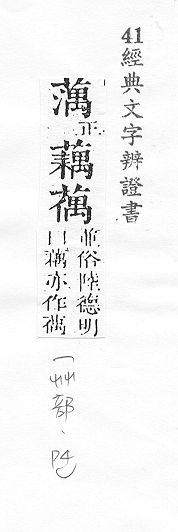 41 經典文字辨證書
蕅正
藕
並俗陸德明
曰藕亦作
(艸部、P4)